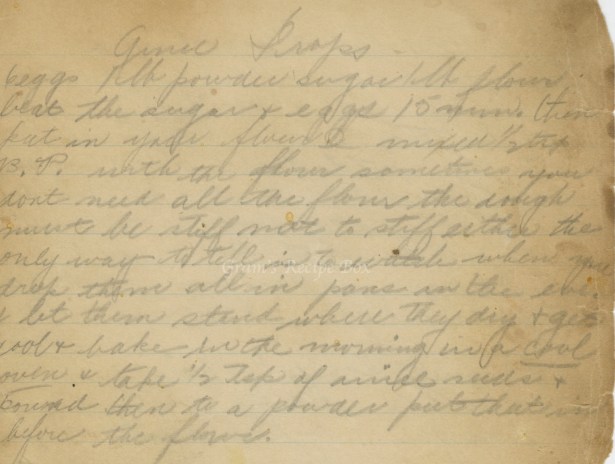 Anice Drops -
6 eggs 1 lb powder sugar 1 lb flour
beat the sugar & eggs 15 min. then
put in your flour mixed 1/2 tsp
B. P. with the flour sometimes you
dont need all the flour the dough
must be stiff not to stiff either the
only way to tell is to watch when you
drop them all in pans in the eve
& let them stand where they dry & get
cool & bake in the morning in a cool
oven & take 1/2 Tsp of anice seeds &
pound then to a powder put that in
before the flour.
Gram's Recipe Box